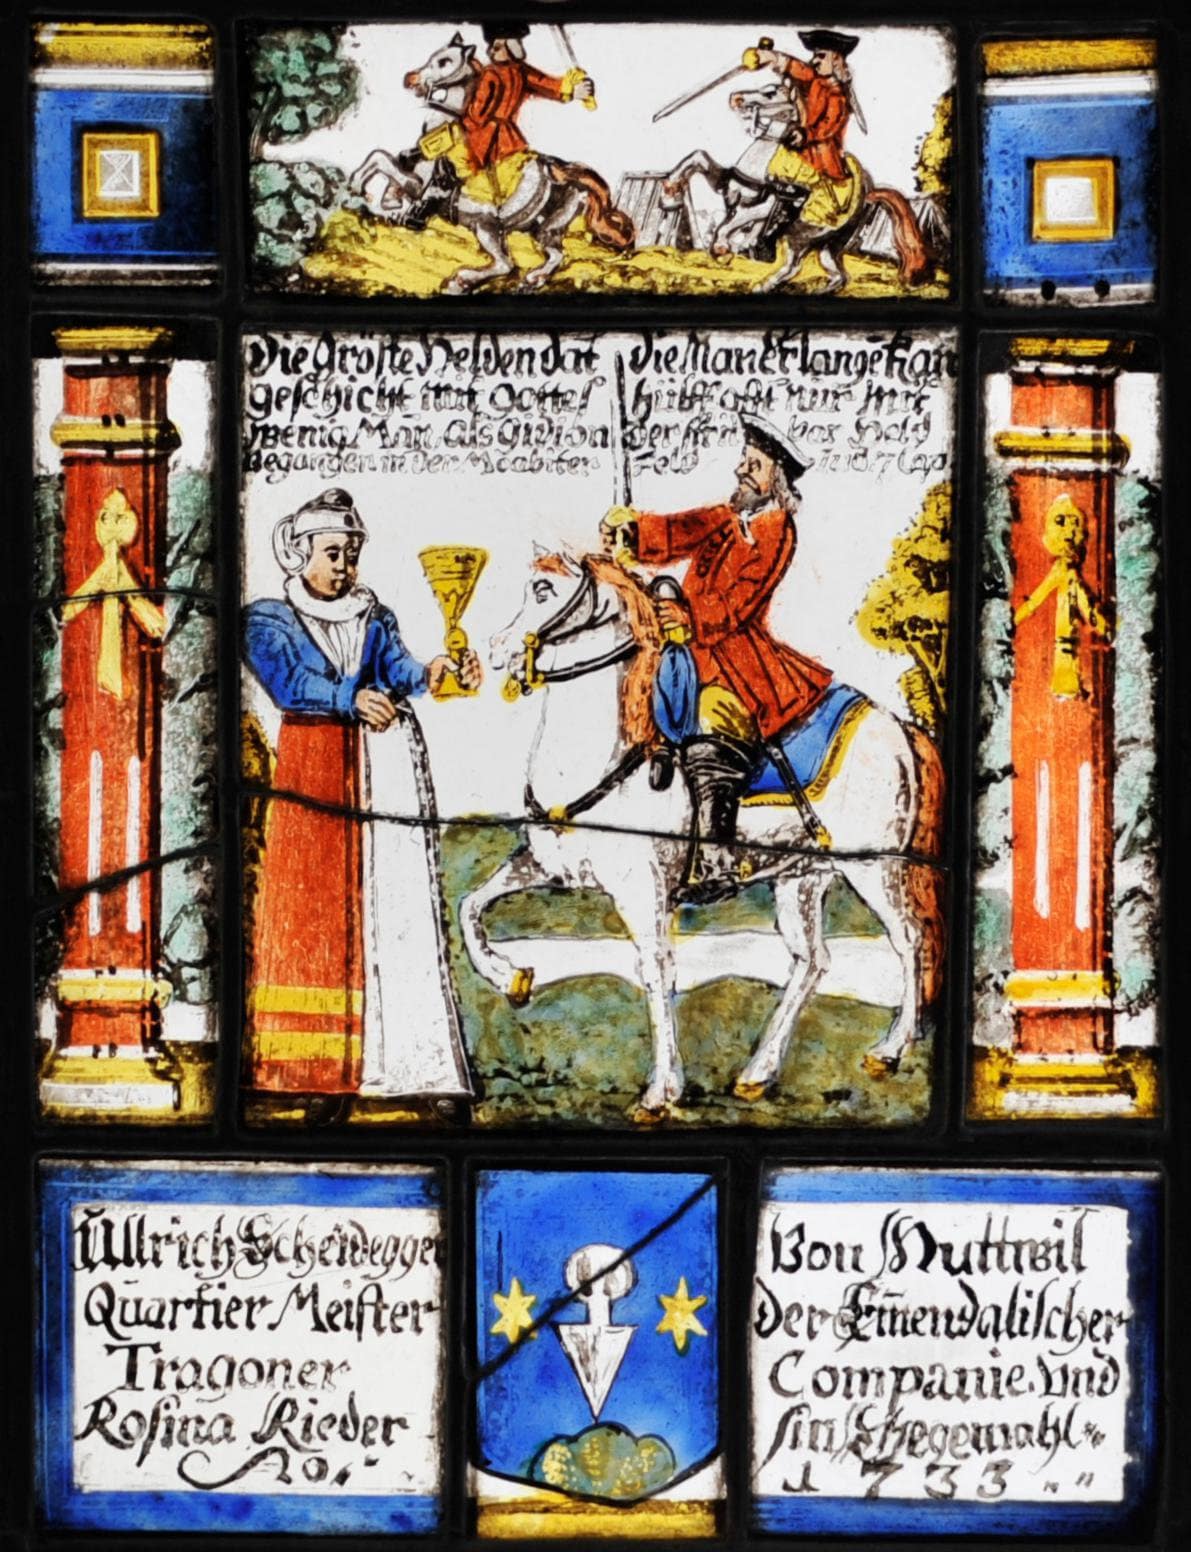 Die Gröste Helden dat die Mann Erlangen kan
geschicht mit Gottes hülff offt nur mit
wenig Man, als Gidion der streitbar Held
Begangen in der Moabiter Feld Jud 7 Cap.
Ullrich Scheidegger
Quartier Meister
Tragoner
Rosina Rieder
Von Huttwil
Der Emendalischer
Companie. Und
sin Ehegemahl
1733